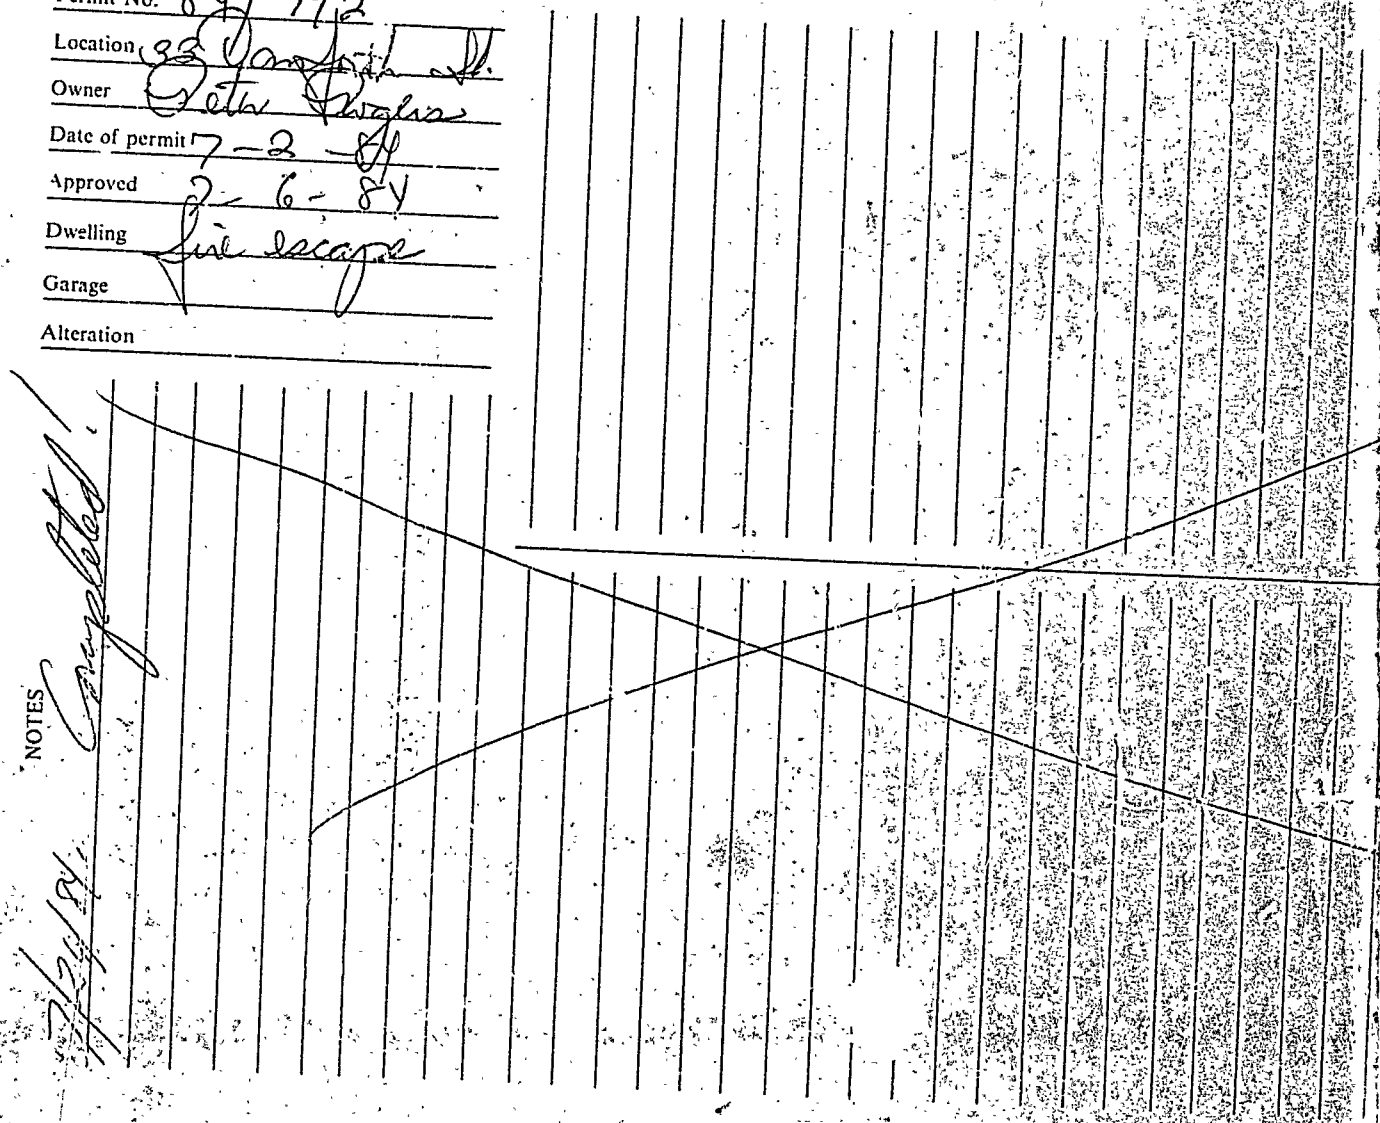 Permit No. 84 772
Location 33 Danforth St.
Owner Seth
Date of permit 7-2-84
Approved 7-6-84
Dwelling fire escape
Garage
Alteration
NOTES
7/26/84 Completed!